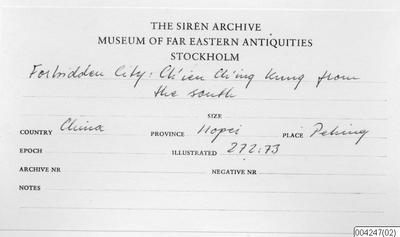 THE SIRÉN ARCHIVE
MUSEUM OF FAR EASTERN ANTIQUITIES
STOCKHOLM
Forbidden City: Ch'ien Ch'ing Kung from
the south
SIZE
COUNTRY China PROVINCE Hopei PLACE Peking
EPOCH ILLUSTRATED 272:73
ARCHIVE NR NEGATIVE NR
NOTES
004247(02)